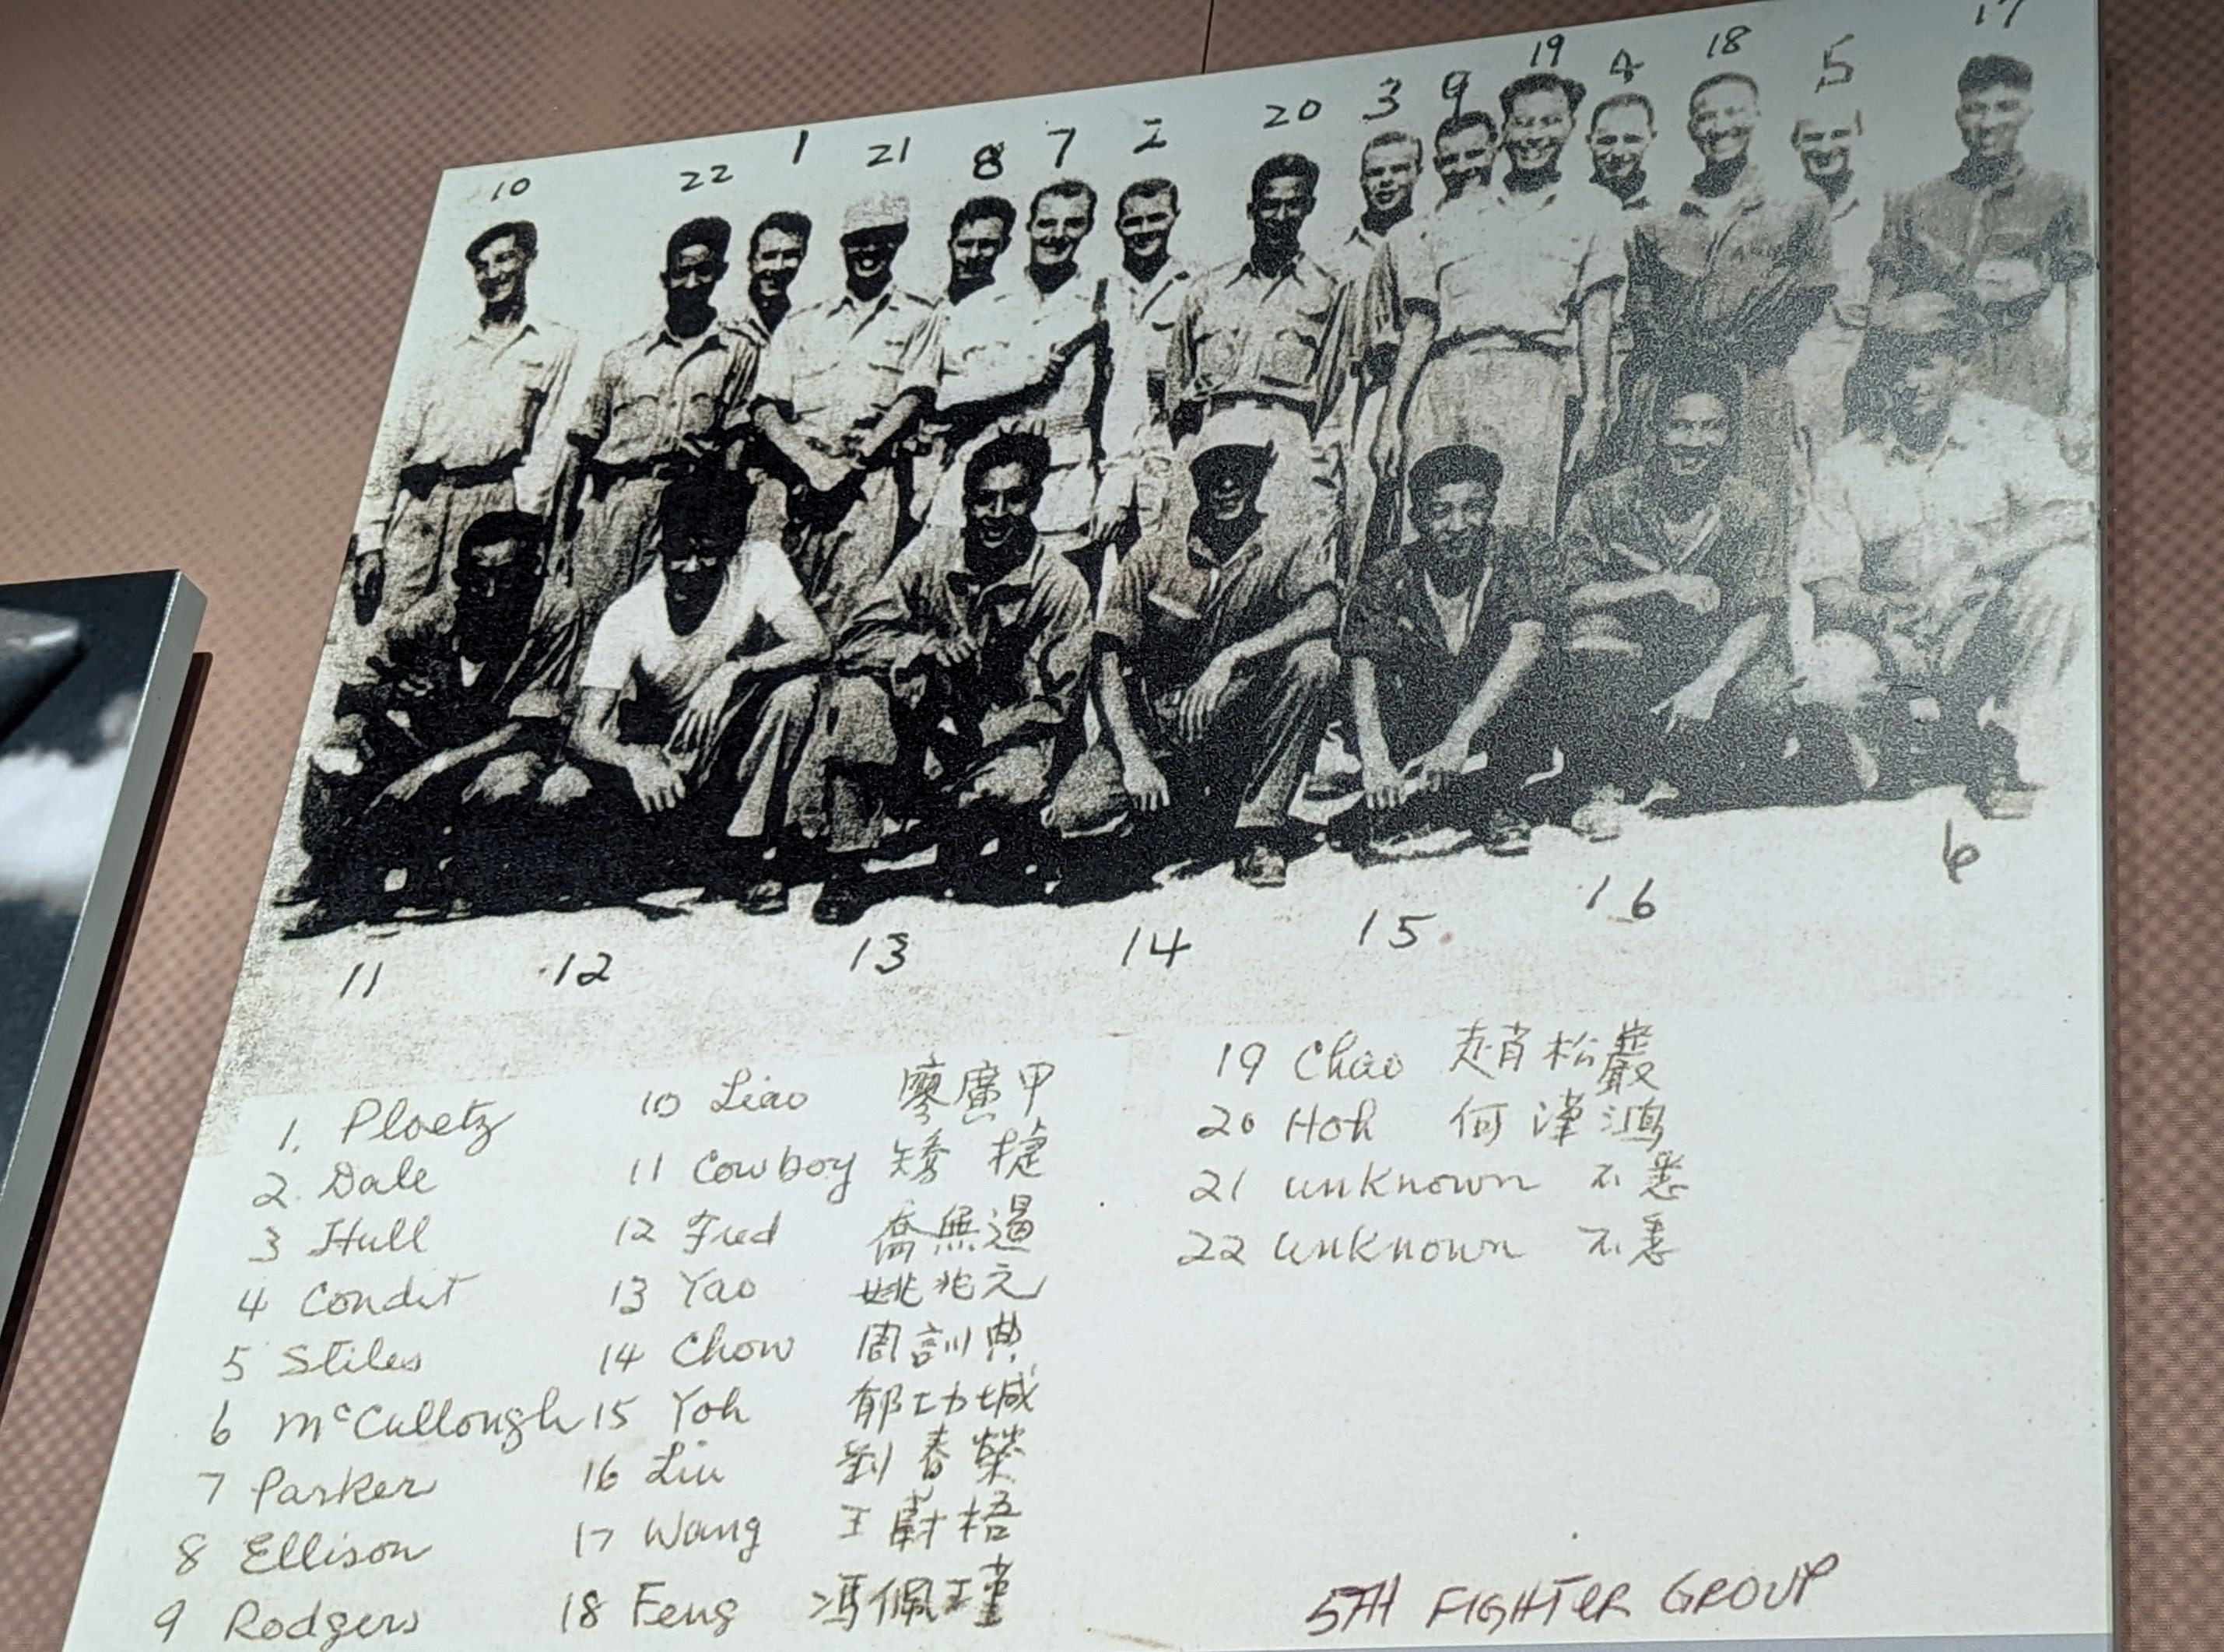 17
19 4 18 5
20 3 9
1 21 8 7 2
10 22
6
16
15
11 12 13 14
1. Ploetz
2. Dale
3 Hull
4 Condit
5 Stiles
6 McCullough
7 Parker
8 Ellison
9 Rodgers
10 Liao 廖廣甲
11 Cowboy 矯捷
12 Fred 喬無遏
13 Yao 姚兆元
14 Chow 周訓典
15 Yoh 郁功城
16 Liu 劉春榮
17 Wang 王尉梧
18 Feng 馮佩瑾
19 Chao 趙松巖
20 Hoh 何漢鴻
21 unknown 不悉
22 unknown 不悉
5TH FIGHTER GROUP